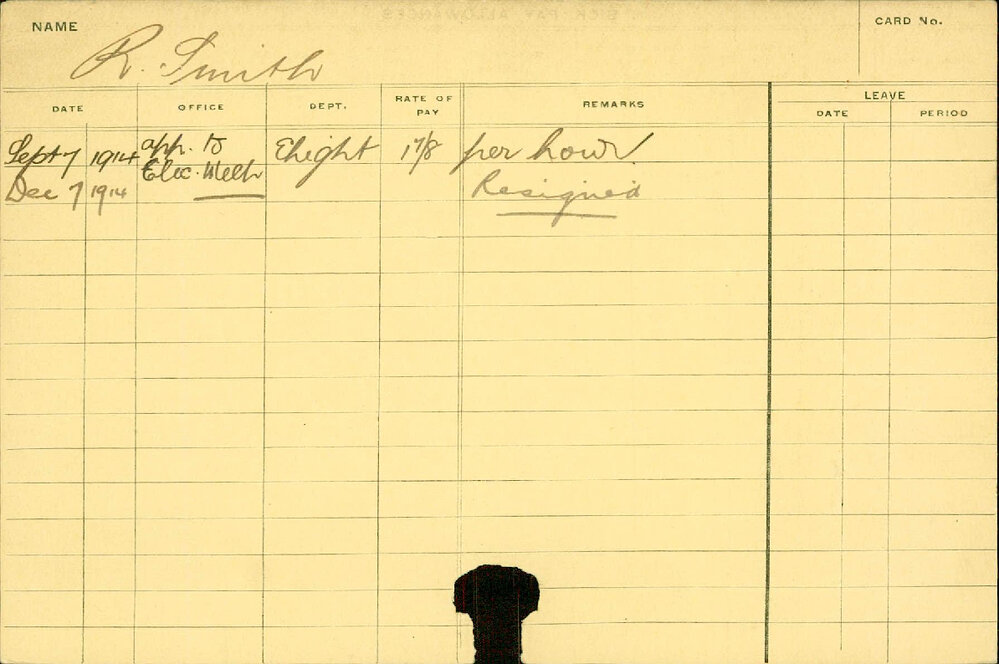 NAME
CARD No.
R. Smith
DATE OFFICE DEPT. RATE OF PAY REMARKS LEAVE
DATE PERIOD
Sept 7 1914 app. to Elight 1/8 per hour
Elec. Mech
Dec 7 1914 Resigned